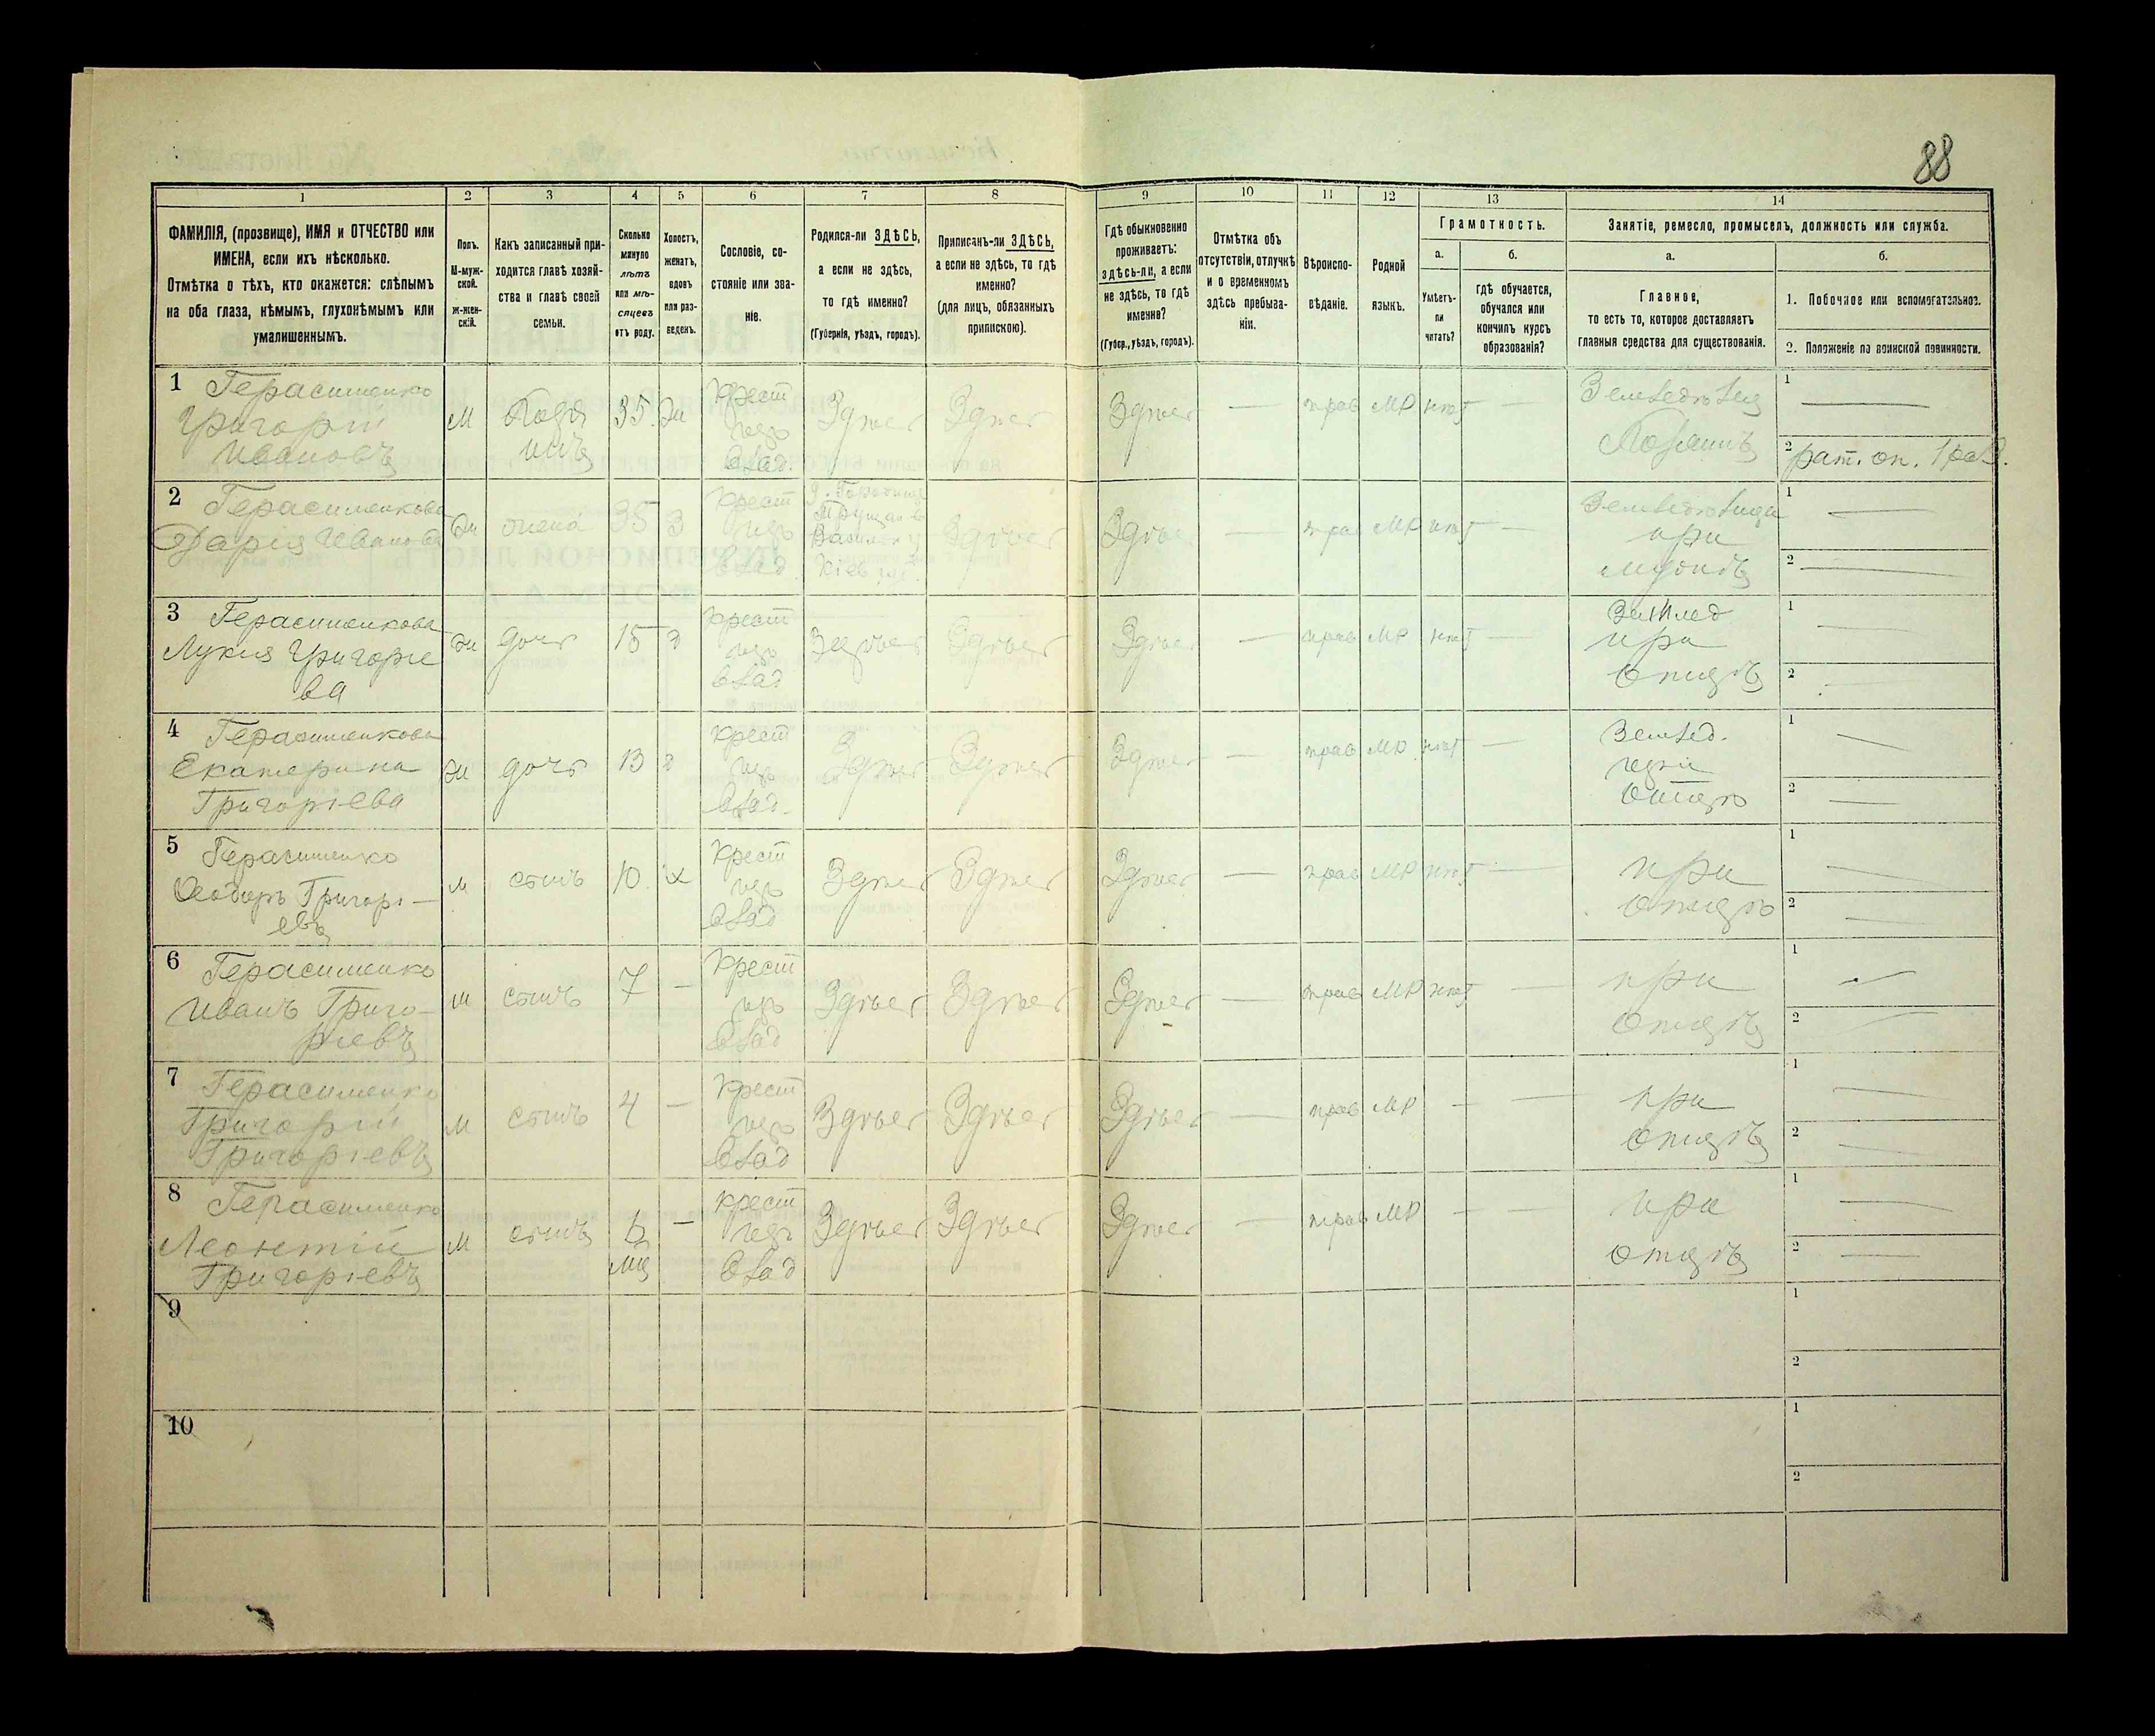 88
1 2 3 4 5 6 7 8 9 10 11 12 13 14
ФАМИЛІЯ, (прозвище), ИМЯ и ОТЧЕСТВО или
ИМЕНА, если ихъ нѣсколько.
Отмѣтка о тѣхъ, кто окажется: слѣпымъ
на оба глаза, нѣмымъ, глухонѣмымъ или
умалишеннымъ.
Полъ.
М-муж-
ской.
ж-жен-
скій.
Какъ записанный при-
ходится главѣ хозяй-
ства и главѣ своей
семьи.
Сколько
минуло
лѣтъ
или мѣ-
сяцевъ
отъ роду.
Холостъ,
женатъ,
вдовъ
или раз-
веденъ.
Сословіе, со-
стояніе или зва-
ніе.
Родился-ли ЗДѢСЬ,
а если не здѣсь,
то гдѣ именно?
(Губернія, уѣздъ, городъ).
Приписанъ-ли ЗДѢСЬ,
а если не здѣсь, то гдѣ
именно?
(для лицъ, обязанныхъ
припискою).
Гдѣ обыкновенно
проживаетъ:
здѣсь-ли, а если
не здѣсь, то гдѣ
именно?
(Губер., уѣздъ, городъ).
Отмѣтка объ
отсутствіи, отлучкѣ
и о временномъ
здѣсь пребыва-
ніи.
Вѣроиспо-
вѣданіе.
Родной
языкъ.
Грамотность.
а. б.
Умѣетъ-
ли
читать?
гдѣ обучается,
обучался или
кончилъ курсъ
образованія?
Занятіе, ремесло, промыселъ, должность или служба.
а. б.
Главное,
то есть то, которое доставляетъ
главныя средства для существованія.
1. Побочное или вспомогательное.
2. Положеніе по воинской повинности.
1 Герасименко
Григорій
Ивановъ
М
Хозя
инъ
35
Же
Крест
изъ
влад.
Здѣсь Здѣсь Здѣсь — прав МР нѣт —
Земледѣлец
Хозяинъ
1 —
2 рат. оп. 1 раз.
2 Герасименкова
Дарія Иванова
Же жена 35 З
Крест
изъ
влад
Кіев
Здѣсь Здѣсь — прав МР нѣт —
Земледѣлица
при
мужѣ
1 —
2 —
3 Герасименкова
Лукия Григорie
ва
Же дочь 15 д
Крест
изъ
влад
Здѣсь Здѣсь Здѣсь — прав МР нѣт —
Землед
при
отцѣ
1 —
2 —
4 Герасименкова
Екатерина
Григоріева
Же дочь 13 д
Крест
изъ
влад.
Здѣсь Здѣсь Здѣсь — прав МР нѣт —
Землед.
при
отцѣ
1 —
2 —
5 Герасименко
Ѳеодоръ Григорі —
евъ
М сынъ 10 х
Крест
изъ
влад
Здѣсь Здѣсь Здѣсь — прав МР нѣт —
при
отцѣ
1 —
2 —
6 Герасименко
Иванъ Григо-
ріевъ
М сынъ 7 —
Крест
изъ
влад
Здѣсь Здѣсь Здѣсь — прав МР нѣт —
при
отцѣ
1 —
2 —
7 Герасименко
Григорій
Григоріевъ
М сынъ 4 —
Крест
изъ
влад
Здѣсь Здѣсь Здѣсь — прав МР — —
при
отцѣ
1 —
2 —
8 Герасименко
Леонтій
Григоріевъ
М сынъ 6 —
мц
Крест
изъ
влад
Здѣсь Здѣсь Здѣсь — прав МР — —
при
отцѣ
1 —
2 —
9
1
2
10
1
2